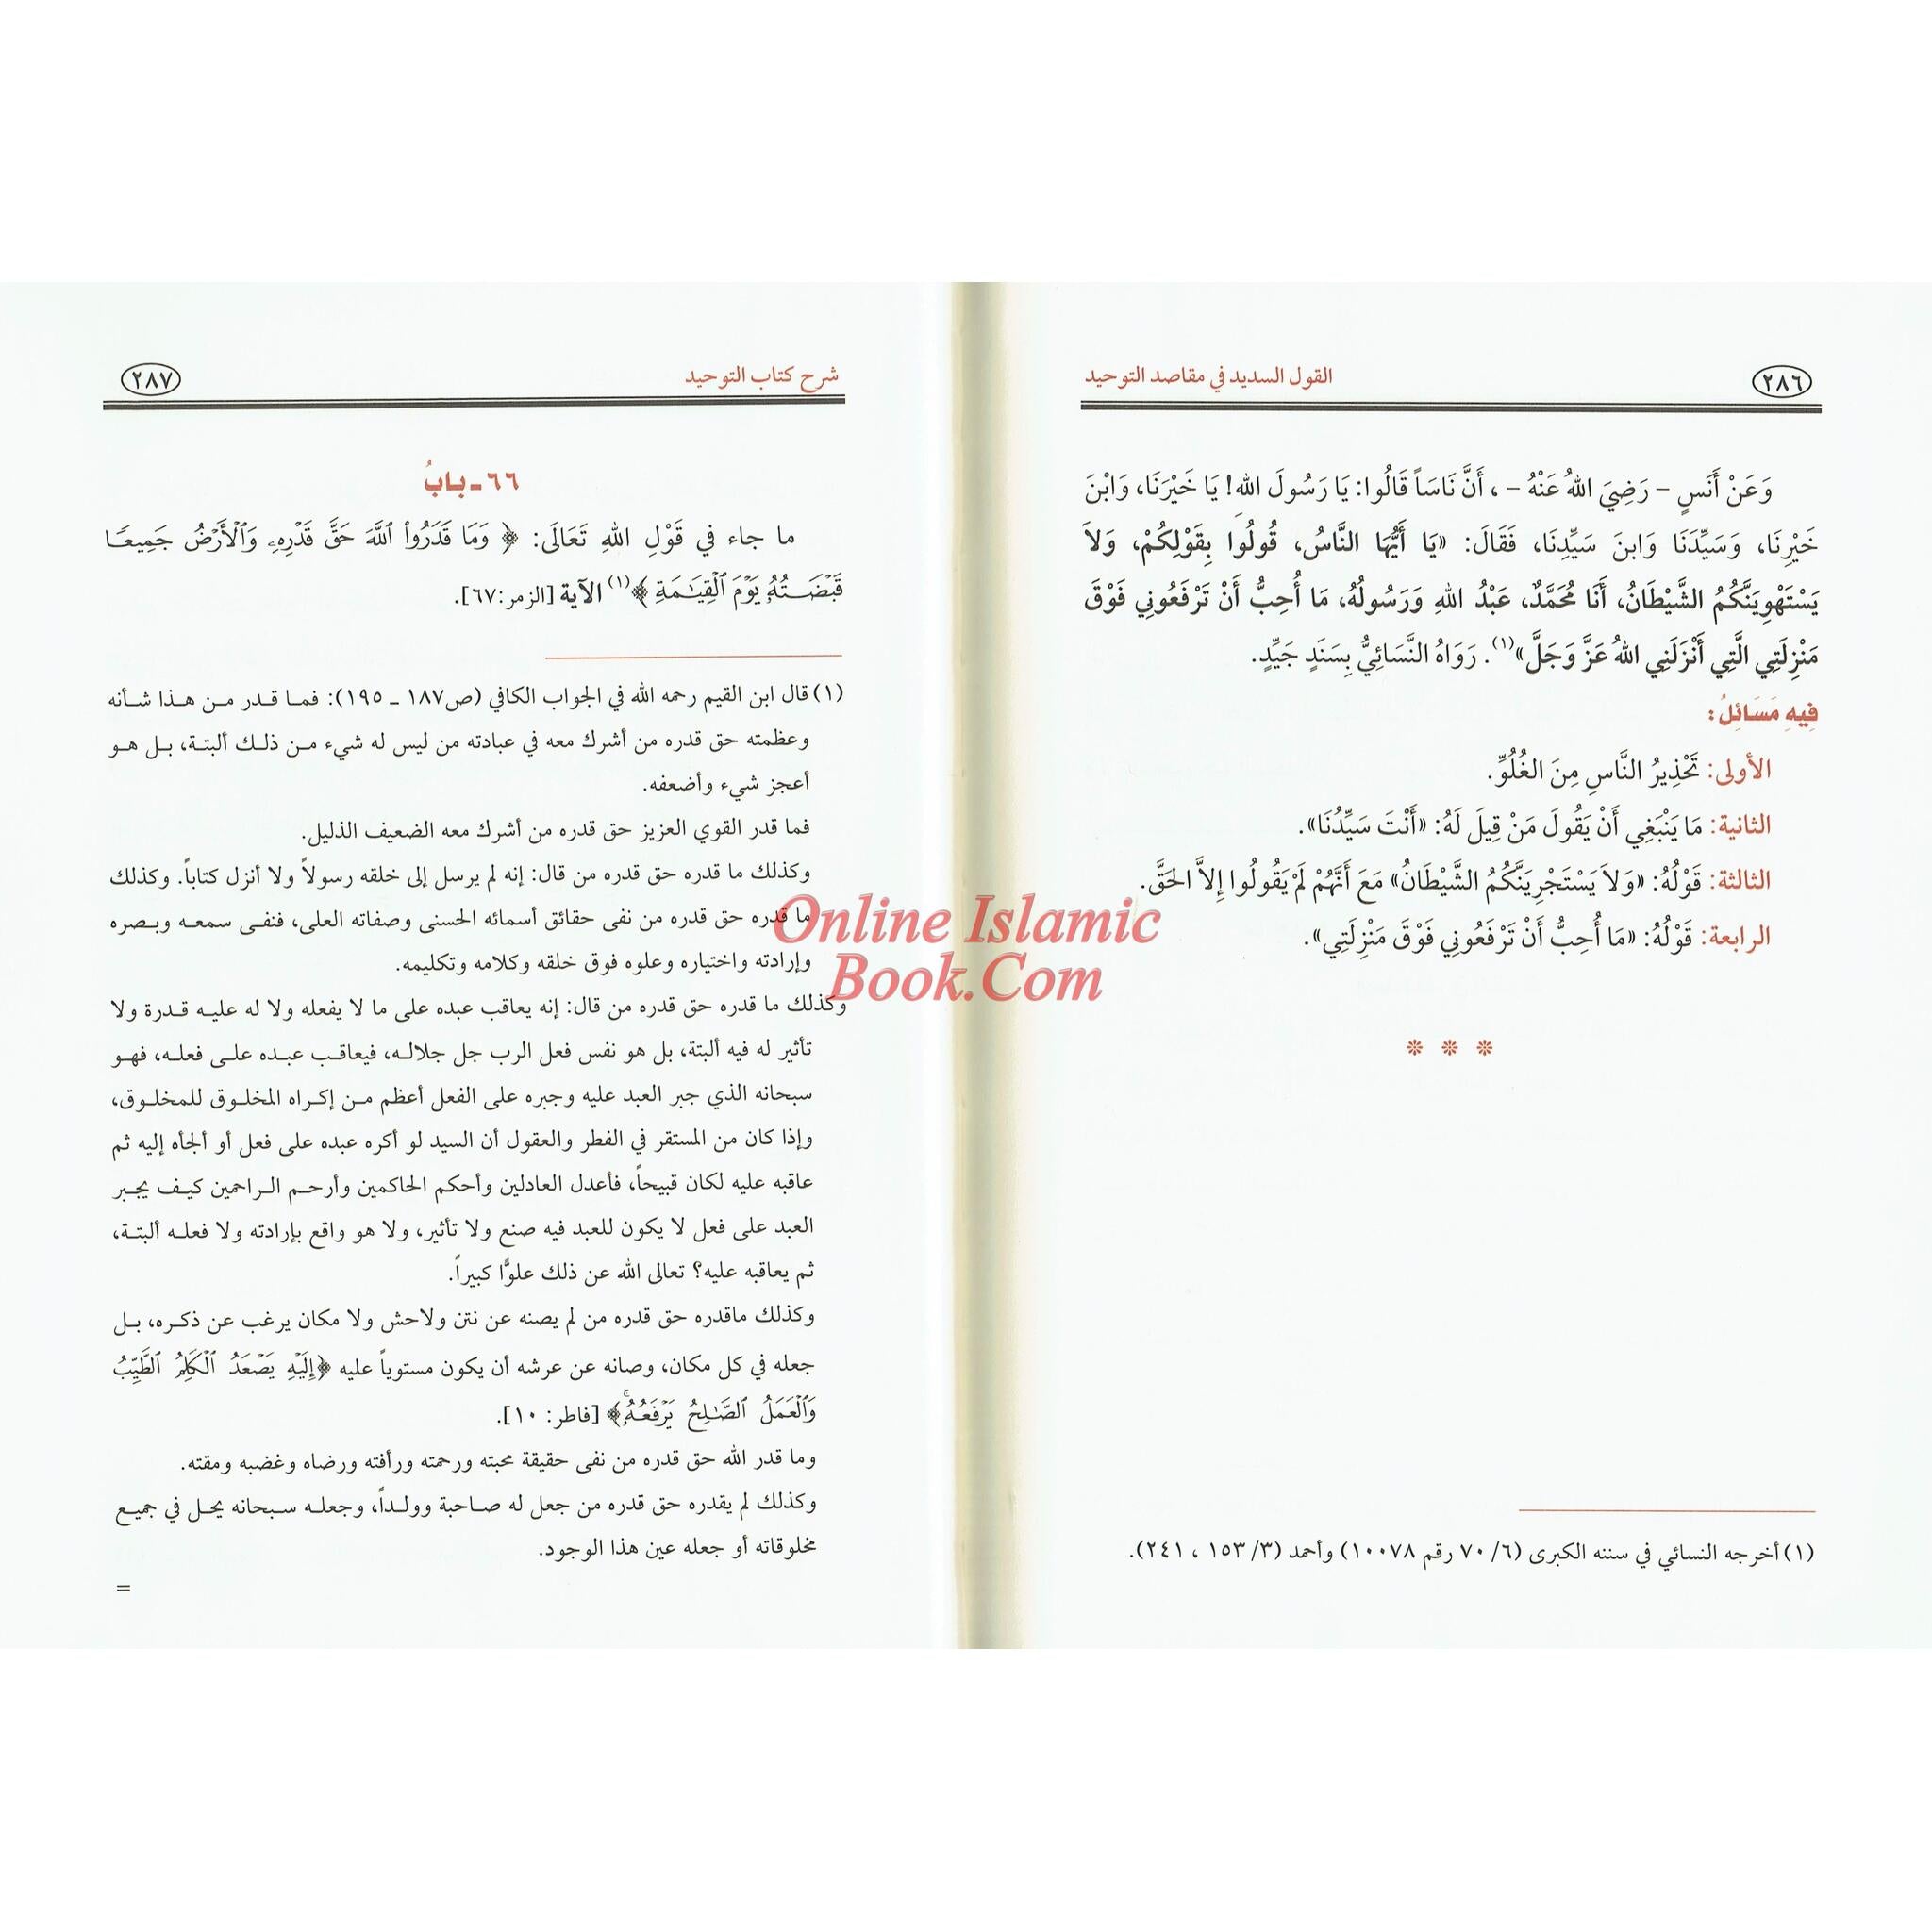 القول السديد في مقاصد التوحيد
٢٨٦
وَعَنْ أَنَسٍ – رَضِيَ اللهُ عَنْهُ – ، أَنَّ نَاسَاً قَالُوا: يَا رَسُولَ اللهِ! يَا خَيْرَنَا، وَابْنَ
خَيْرِنَا، وَسَيِّدَنَا وَابنَ سَيِّدِنَا، فَقَالَ: «يَا أَيُّهَا النَّاسُ، قُولُوا بِقَوْلِكُمْ، وَلاَ
يَسْتَهْوِيَنَّكُمُ الشَّيْطَانُ، أَنَا مُحَمَّدٌ، عَبْدُ اللهِ وَرَسُولُهُ، مَا أُحِبُّ أَنْ تَرْفَعُونِي فَوْقَ
مَنْزِلَتِي الَّتِي أَنْزَلَنِي اللهُ عَزَّ وَجَلَّ»(١). رَوَاهُ النَّسَائِيُّ بِسَنَدٍ جَيِّدٍ.
فِيهِ مَسَائِلُ:
الأولى: تَحْذِيرُ النَّاسِ مِنَ الغُلُوِّ.
الثانية: مَا يَنْبَغِي أَنْ يَقُولَ مَنْ قِيلَ لَهُ: «أَنْتَ سَيِّدُنَا».
الثالثة: قَوْلُهُ: «وَلاَ يَسْتَجْرِيَنَّكُمُ الشَّيْطَانُ» مَعَ أَنَّهُمْ لَمْ يَقُولُوا إِلاَّ الحَقَّ.
الرابعة: قَوْلُهُ: «مَا أُحِبُّ أَنْ تَرْفَعُونِي فَوْقَ مَنْزِلَتِي».
(١) أخرجه النسائي في سننه الكبرى (٦/ ٧٠ رقم ١٠٠٧٨) وأحمد (٣/ ١٥٣ ، ٢٤١).
شرح كتاب التوحيد
٢٨٧
٦٦ ـ بابُ
ما جاء في قَوْلِ اللهِ تَعَالَى: ﴿ وَمَا قَدَرُواْ ٱللَّهَ حَقَّ قَدْرِهِۦ وَٱلْأَرْضُ جَمِيعًا
قَبْضَتُهُۥ يَوْمَ ٱلْقِيَـٰمَةِ ﴾(١) الآية [الزمر:٦٧].
(١) قال ابن القيم رحمه الله في الجواب الكافي (ص١٨٧ ـ ١٩٥): فما قدر من هذا شأنه
وعظمته حق قدره من أشرك معه في عبادته من ليس له شيء من ذلك ألبتة، بل هو
أعجز شيء وأضعفه.
فما قدر القوي العزيز حق قدره من أشرك معه الضعيف الذليل.
وكذلك ما قدره حق قدره من قال: إنه لم يرسل إلى خلقه رسولاً ولا أنزل كتاباً. وكذلك
ما قدره حق قدره من نفى حقائق أسمائه الحسنى وصفاته العلى، فنفى سمعه وبصره
وإرادته واختياره وعلوه فوق خلقه وكلامه وتكليمه.
وكذلك ما قدره حق قدره من قال: إنه يعاقب عبده على ما لا يفعله ولا له عليه قدرة ولا
تأثير له فيه ألبتة، بل هو نفس فعل الرب جل جلاله، فيعاقب عبده على فعله، فهو
سبحانه الذي جبر العبد عليه وجبره على الفعل أعظم من إكراه المخلوق للمخلوق،
وإذا كان من المستقر في الفطر والعقول أن السيد لو أكره عبده على فعل أو ألجأه إليه ثم
عاقبه عليه لكان قبيحاً، فأعدل العادلين وأحكم الحاكمين وأرحم الراحمين كيف يجبر
العبد على فعل لا يكون للعبد فيه صنع ولا تأثير، ولا هو واقع بإرادته ولا فعله ألبتة،
ثم يعاقبه عليه؟ تعالى الله عن ذلك علوًّا كبيراً.
وكذلك ماقدره حق قدره من لم يصنه عن نتن ولاحش ولا مكان يرغب عن ذكره، بل
جعله في كل مكان، وصانه عن عرشه أن يكون مستوياً عليه ﴿إِلَيْهِ يَصْعَدُ ٱلْكَلِمُ ٱلطَّيِّبُ
وَٱلْعَمَلُ ٱلصَّـٰلِحُ يَرْفَعُهُۥۚ﴾ [فاطر: ١٠].
وما قدر الله حق قدره من نفى حقيقة محبته ورحمته ورأفته ورضاه وغضبه ومقته.
وكذلك لم يقدره حق قدره من جعل له صاحبة وولداً، وجعله سبحانه يحل في جميع
مخلوقاته أو جعله عين هذا الوجود.
=
Online Islamic
Book.Com